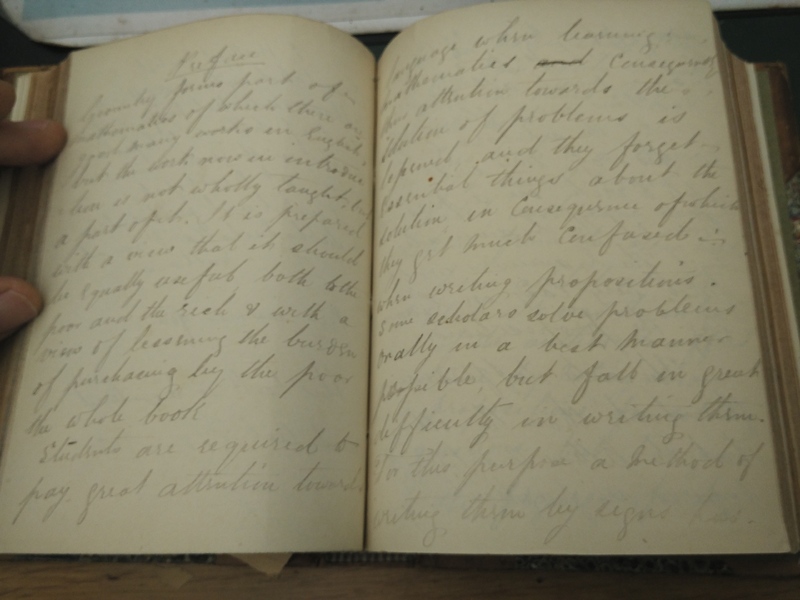 Preface
Geometry forms part of
mathematics of which there are
good many works in English,
but the work now in introduc
tion is not wholly taught, but
a part of it. It is prepared
with a view that it should
be equally useful both to the
poor and the rich & with a
view of lessening the burden
of purchasing by the poor
the whole book
Students are required to
pay great attention towards
language when learning
mathematics and Consequently
their attention towards the
of problems is
and they forget
essential things about the
solution in Consequence of which
they get much Confused in
when writing propositions.
Some scholars solve problems
orally in a best manner
possible, but fall in great
difficulty in writing them.
For this purpose a method of
writing them by signs has